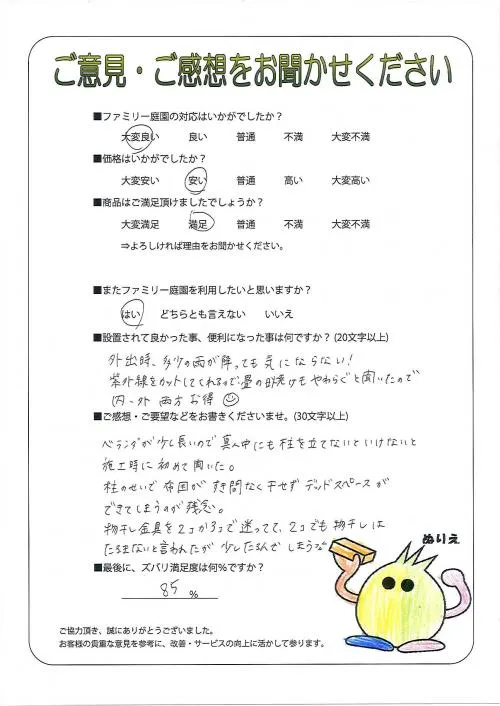 ご意見・ご感想をお聞かせください
■ファミリー庭園の対応はいかがでしたか？
大変良い 良い 普通 不満 大変不満
■価格はいかがでしたか？
大変安い 安い 普通 高い 大変高い
■商品はご満足頂けましたでしょうか？
大変満足 満足 普通 不満 大変不満
⇒よろしければ理由をお聞かせください。
■またファミリー庭園を利用したいと思いますか？
はい どちらとも言えない いいえ
■設置されて良かった事、便利になった事は何ですか？(20文字以上)
外出時、多少の雨が降っても気にならない！
紫外線をカットしてくれるので畳の日焼けもやわらぐと聞いたので
内・外 両方お得
■ご感想・ご要望などをお書きくださいませ。(30文字以上)
ベランダが少し長いので真ん中にも柱を立てないといけないと
施工時に初めて聞いた。
柱のせいで布団がすき間なく干せずデッドスペースが
できてしまうのが残念。
物干し金具を2コか3コで迷ってて、2コでも物干しは
たるまないと言われたが少したるんでしまうな
■最後に、ズバリ満足度は何%ですか？
85 %
ぬりえ
ご協力頂き、誠にありがとうございました。
お客様の貴重な意見を参考に、改善・サービスの向上に活かして参ります。